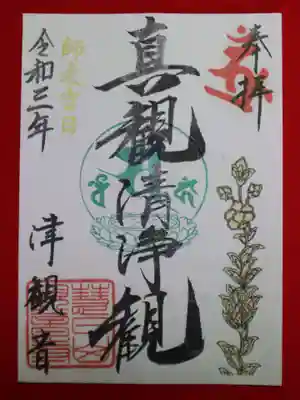 奉拝
真観清浄観
令和三年
師走吉日
津観音